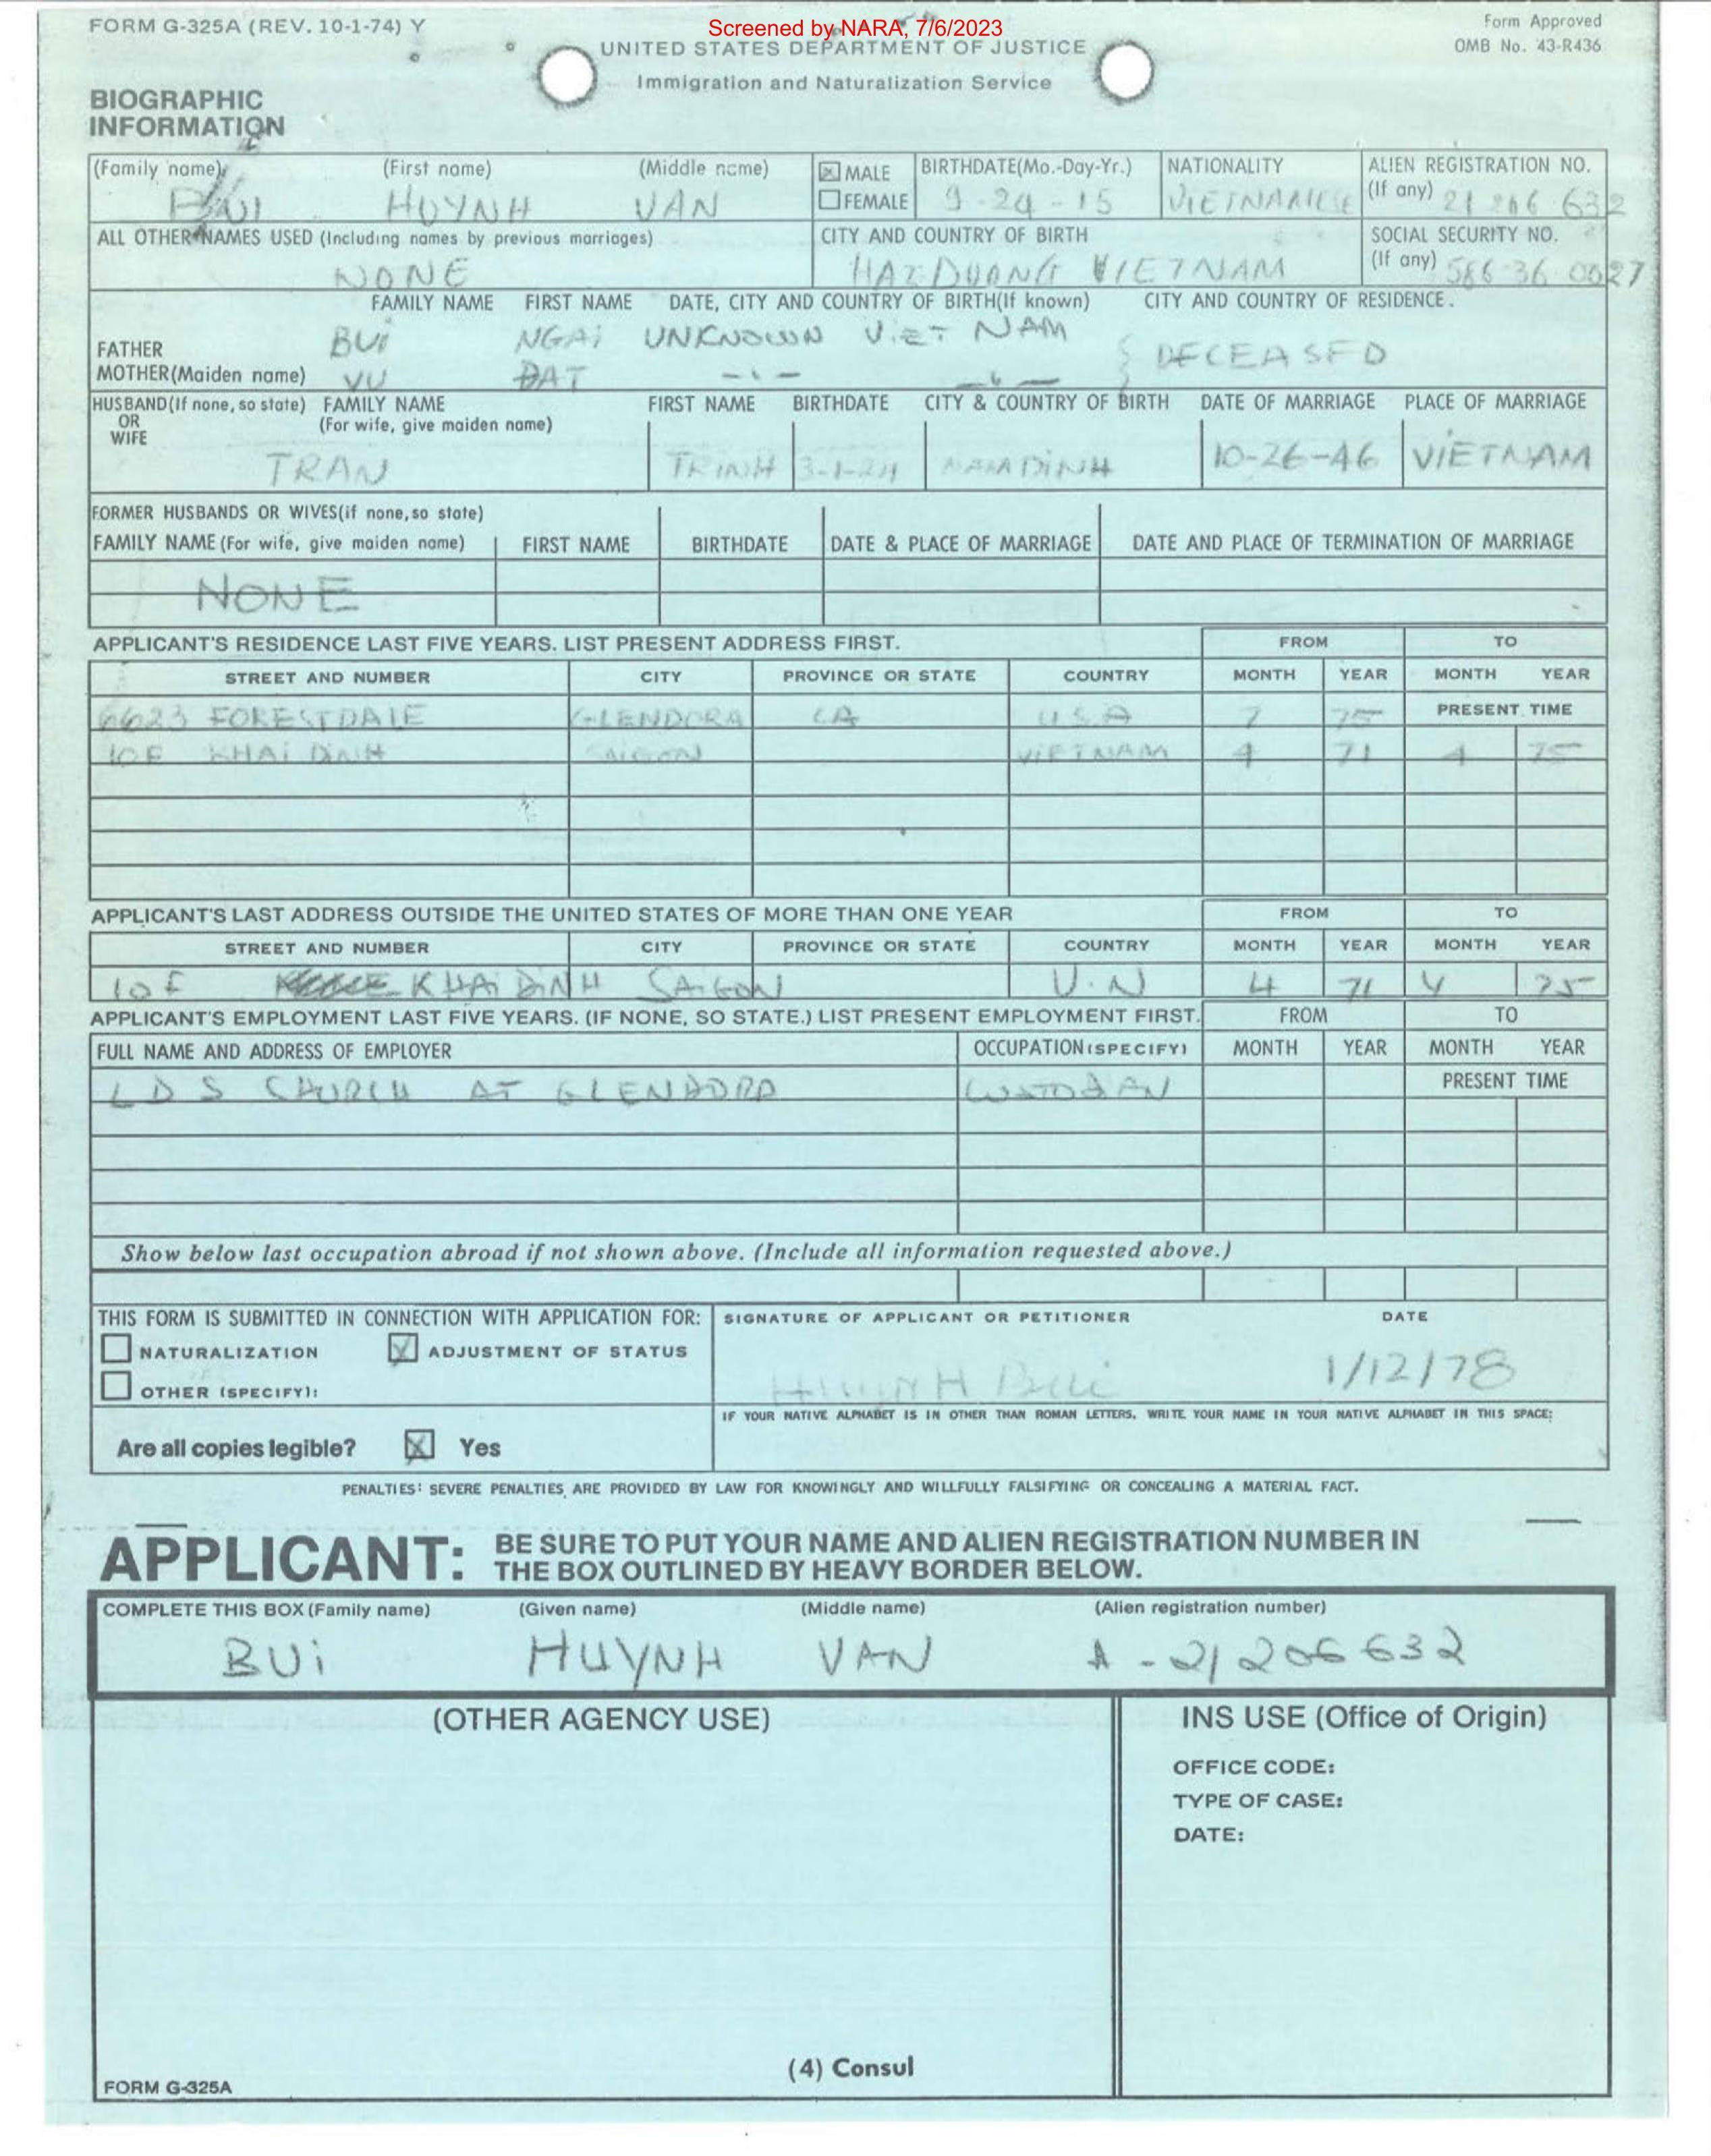 FORM G-325A (REV. 10-1-74) Y
Screened by NARA, 7/6/2023
Form Approved
OMB No. 43-R436
UNITED STATES DEPARTMENT OF JUSTICE
Immigration and Naturalization Service
BIOGRAPHIC
INFORMATION
(Family name) (First name) (Middle name) MALE FEMALE BIRTHDATE(Mo.-Day-Yr.) NATIONALITY ALIEN REGISTRATION NO. (If any)
BUI HUYNH VAN 9-24-15 VIETNAMESE 21 206 632
ALL OTHER NAMES USED (Including names by previous marriages) CITY AND COUNTRY OF BIRTH SOCIAL SECURITY NO. (If any)
NONE HAI DUONG VIETNAM 586-36 0027
FAMILY NAME FIRST NAME DATE, CITY AND COUNTRY OF BIRTH(If known) CITY AND COUNTRY OF RESIDENCE.
FATHER BUi NGAi UNKNOWN ViET NAM DECEASED
MOTHER(Maiden name) VU DAT
HUSBAND(If none, so state) FAMILY NAME FIRST NAME BIRTHDATE CITY & COUNTRY OF BIRTH DATE OF MARRIAGE PLACE OF MARRIAGE
OR (For wife, give maiden name)
WIFE
TRAN TRINH NAM DiNH 10-26-46 VIETNAM
FORMER HUSBANDS OR WIVES(if none, so state)
FAMILY NAME (For wife, give maiden name) FIRST NAME BIRTHDATE DATE & PLACE OF MARRIAGE DATE AND PLACE OF TERMINATION OF MARRIAGE
NONE
APPLICANT'S RESIDENCE LAST FIVE YEARS. LIST PRESENT ADDRESS FIRST. FROM TO
STREET AND NUMBER CITY PROVINCE OR STATE COUNTRY MONTH YEAR MONTH YEAR
6623 FORESTDALE GLENDORA CA USA 7 75 PRESENT TIME
10F KHAi DiNH SAIGON VIETNAM 4 71 4 75
APPLICANT'S LAST ADDRESS OUTSIDE THE UNITED STATES OF MORE THAN ONE YEAR FROM TO
STREET AND NUMBER CITY PROVINCE OR STATE COUNTRY MONTH YEAR MONTH YEAR
10F KHAi DiNH SAiGON V.N 4 71 4 75
APPLICANT'S EMPLOYMENT LAST FIVE YEARS. (IF NONE, SO STATE.) LIST PRESENT EMPLOYMENT FIRST. FROM TO
FULL NAME AND ADDRESS OF EMPLOYER OCCUPATION (SPECIFY) MONTH YEAR MONTH YEAR
LDS CHURCH AT GLENDORA PRESENT TIME
Show below last occupation abroad if not shown above. (Include all information requested above.)
THIS FORM IS SUBMITTED IN CONNECTION WITH APPLICATION FOR: SIGNATURE OF APPLICANT OR PETITIONER DATE
NATURALIZATION X ADJUSTMENT OF STATUS
OTHER (SPECIFY): HUYNH Bui 1/12/78
IF YOUR NATIVE ALPHABET IS IN OTHER THAN ROMAN LETTERS, WRITE YOUR NAME IN YOUR NATIVE ALPHABET IN THIS SPACE:
Are all copies legible? X Yes
PENALTIES: SEVERE PENALTIES ARE PROVIDED BY LAW FOR KNOWINGLY AND WILLFULLY FALSIFYING OR CONCEALING A MATERIAL FACT.
APPLICANT: BE SURE TO PUT YOUR NAME AND ALIEN REGISTRATION NUMBER IN
THE BOX OUTLINED BY HEAVY BORDER BELOW.
COMPLETE THIS BOX (Family name) (Given name) (Middle name) (Alien registration number)
BUi HUYNH VAN A-21206632
(OTHER AGENCY USE) INS USE (Office of Origin)
OFFICE CODE:
TYPE OF CASE:
DATE:
(4) Consul
FORM G-325A